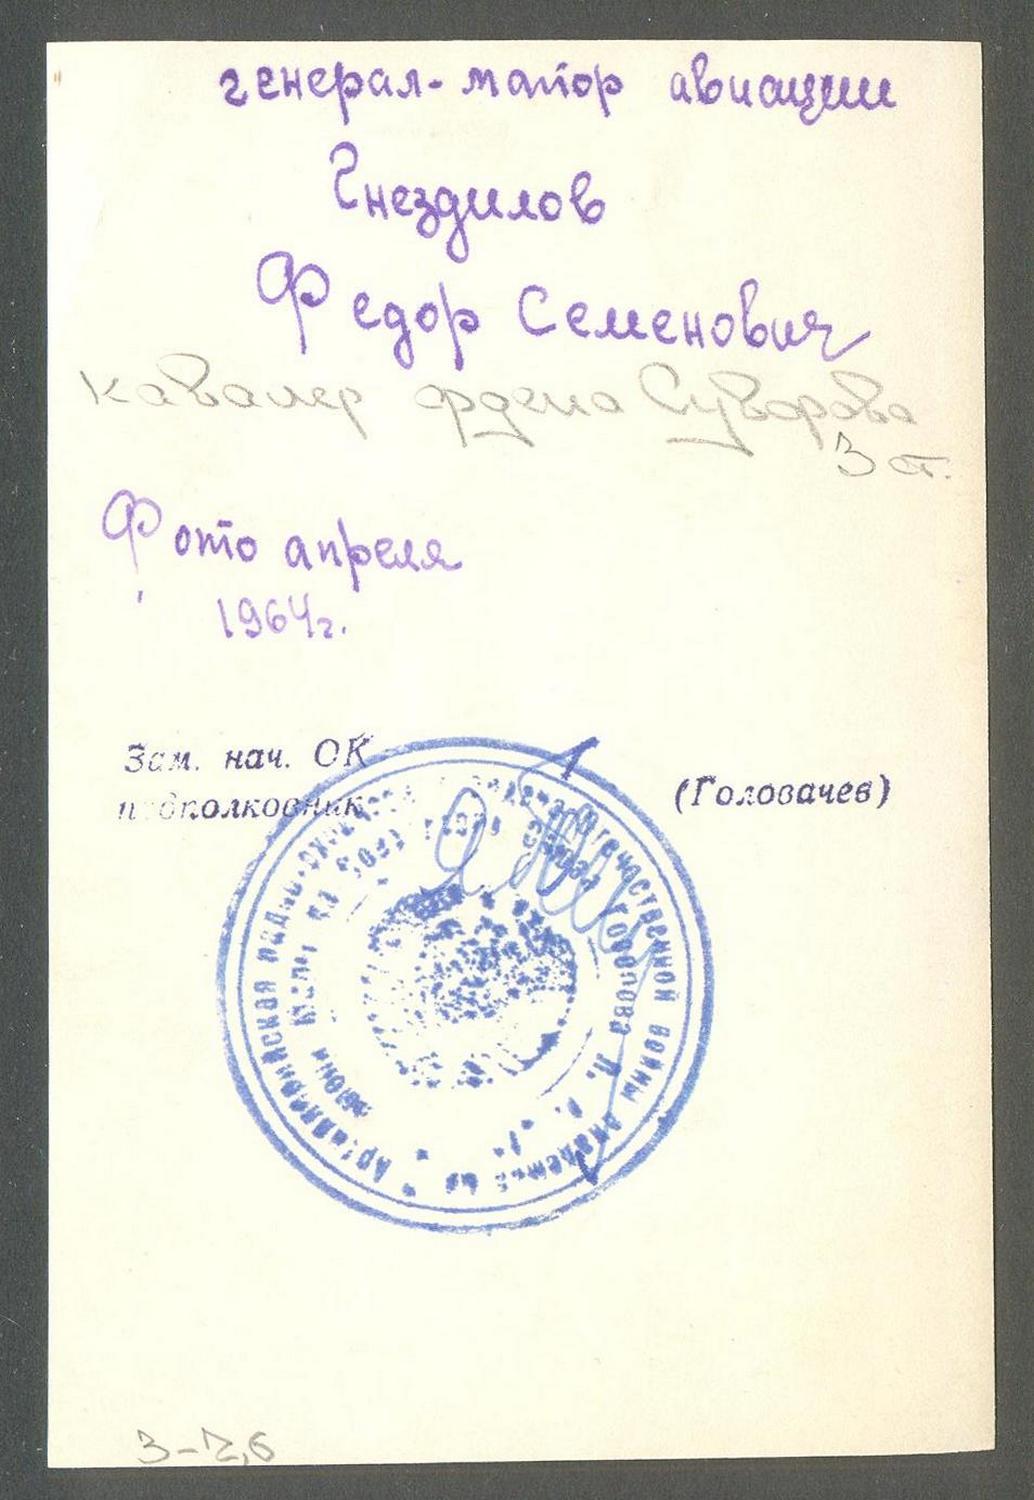 генерал-майор авиации
Гнездилов
Федор Семенович
кавалер ордена Суворова
3 ст.
Фото апреля
1964г.
Зам. нач. ОК
подполковник
(Головачев)
Отечественной войны
3-2,6